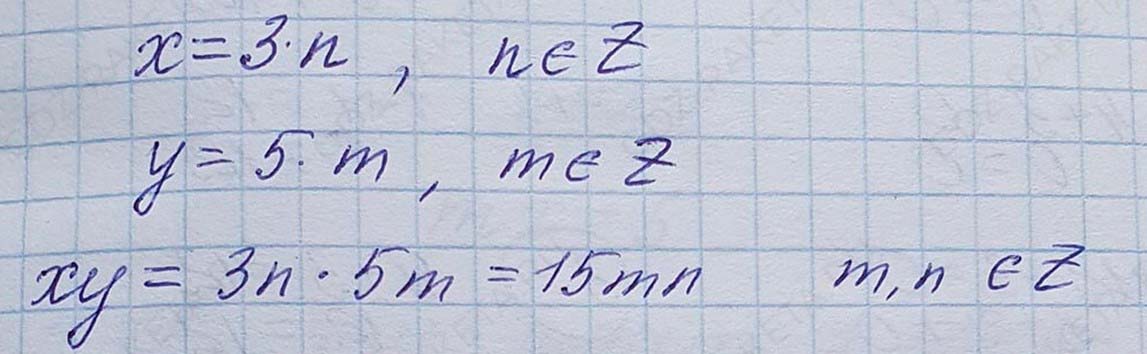 x=3·n, n∈Z
y=5·m, m∈Z
xy=3n·5m=15mn m,n∈Z